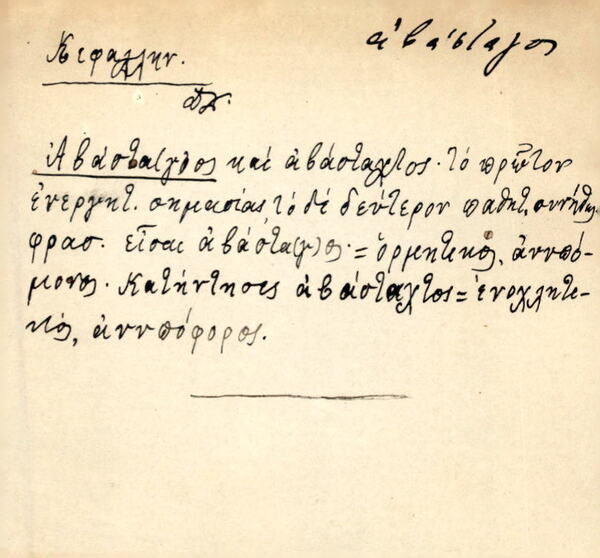 Κεφαλλην.
ἀβάσταγος
Ἀβάστα(γ)ος καὶ ἀβάσταχτος. τὸ πρῶτον
ἐνεργητ. σημασίας τὸ δὲ δεύτερον παθητ. συνήθης
φρασ. εἶσαι ἀβάστα(γ)ος = ὁρμητικός, ἀνυπό-
μονος. Κατήντησες ἀβάσταχτος = ἐνοχλητι-
κός, ἀνυπόφορος.